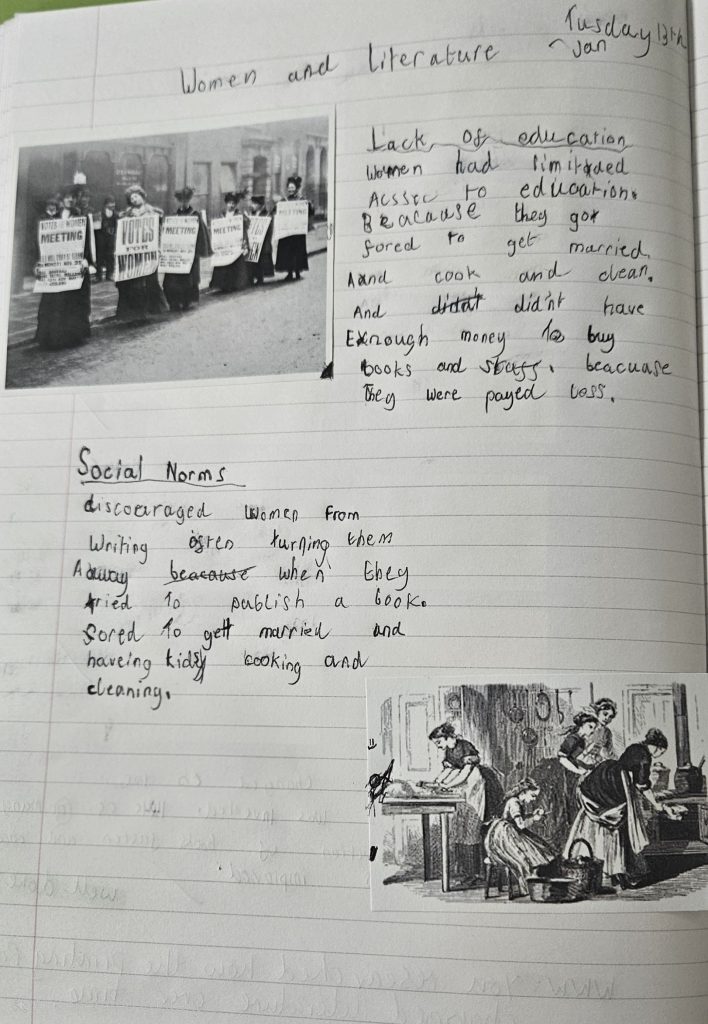 Tusday 13th
Jan
Women and literature
Lack of education
Women had limitded
Acssec to education.
Beacause they got
fored to get married
Aand cook and clean.
And didat didn't have
Exnough money to buy
books and stuff. beacuase
they were payed loss.
VOTES FOR WOMEN
MEETING
VOTES
FOR
WOMEN
MEETING
MEETING
MEETING
Social Norms
discouraged women from
writing often turning them
Away beacause when they
tried to publish a book.
fored to gett married and
haveing kids cooking and
cleaning.